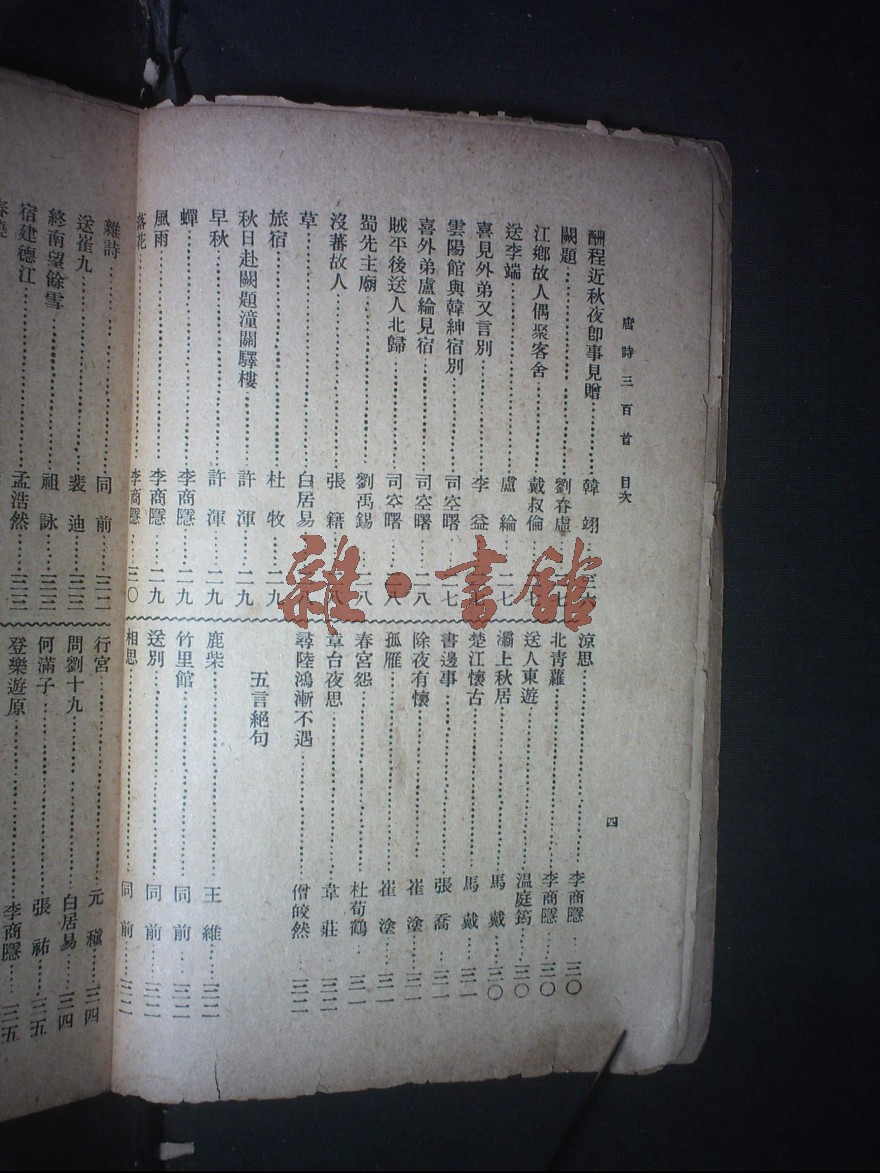 唐詩三百首 目次
四
酬程近秋夜卽事見贈 韓翃
闕題 劉眘虛
江鄉故人偶聚客舍 戴叔倫 二七
送李端 盧綸 二七
喜見外弟又言別 李益
雲陽館與韓紳宿別 司空曙 二七
喜外弟盧綸見宿 司空曙 二八
賊平後送人北歸 司空曙 二八
蜀先主廟 劉禹錫 二八
沒蕃故人 張籍 二八
草 白居易
旅宿 杜牧 二九
秋日赴闕題潼關驛樓 許渾 二九
早秋 許渾 二九
蟬 李商隱 二九
風雨 李商隱 二九
落花 李商隱 三〇
涼思 李商隱 三〇
北靑蘿 李商隱 三〇
送人東遊 温庭筠 三〇
灞上秋居 馬戴 三〇
楚江懷古 馬戴 三一
書邊事 張喬 三一
除夜有懷 崔塗 三一
孤雁 崔塗 三一
春宮怨 杜荀鶴 三一
章台夜思 韋莊 三二
尋陸鴻漸不遇 僧皎然 三二
五言絕句
鹿柴 王維 三二
竹里館 同前 三二
送別 同前 三二
相思 同前 三二
雜詩 同前 三二
送崔九 裴迪 三三
終南望餘雪 祖詠 三三
宿建德江 孟浩然 三三
行宮 元稹 三四
問劉十九 白居易 三四
何滿子 張祜 三五
登樂遊原 李商隱 三五
雜·書館